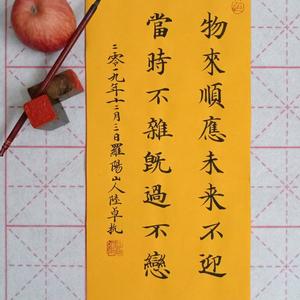 物來順應未来不迎
當時不雜既過不戀
二零一九年十二月二日羅陽山人陸卓